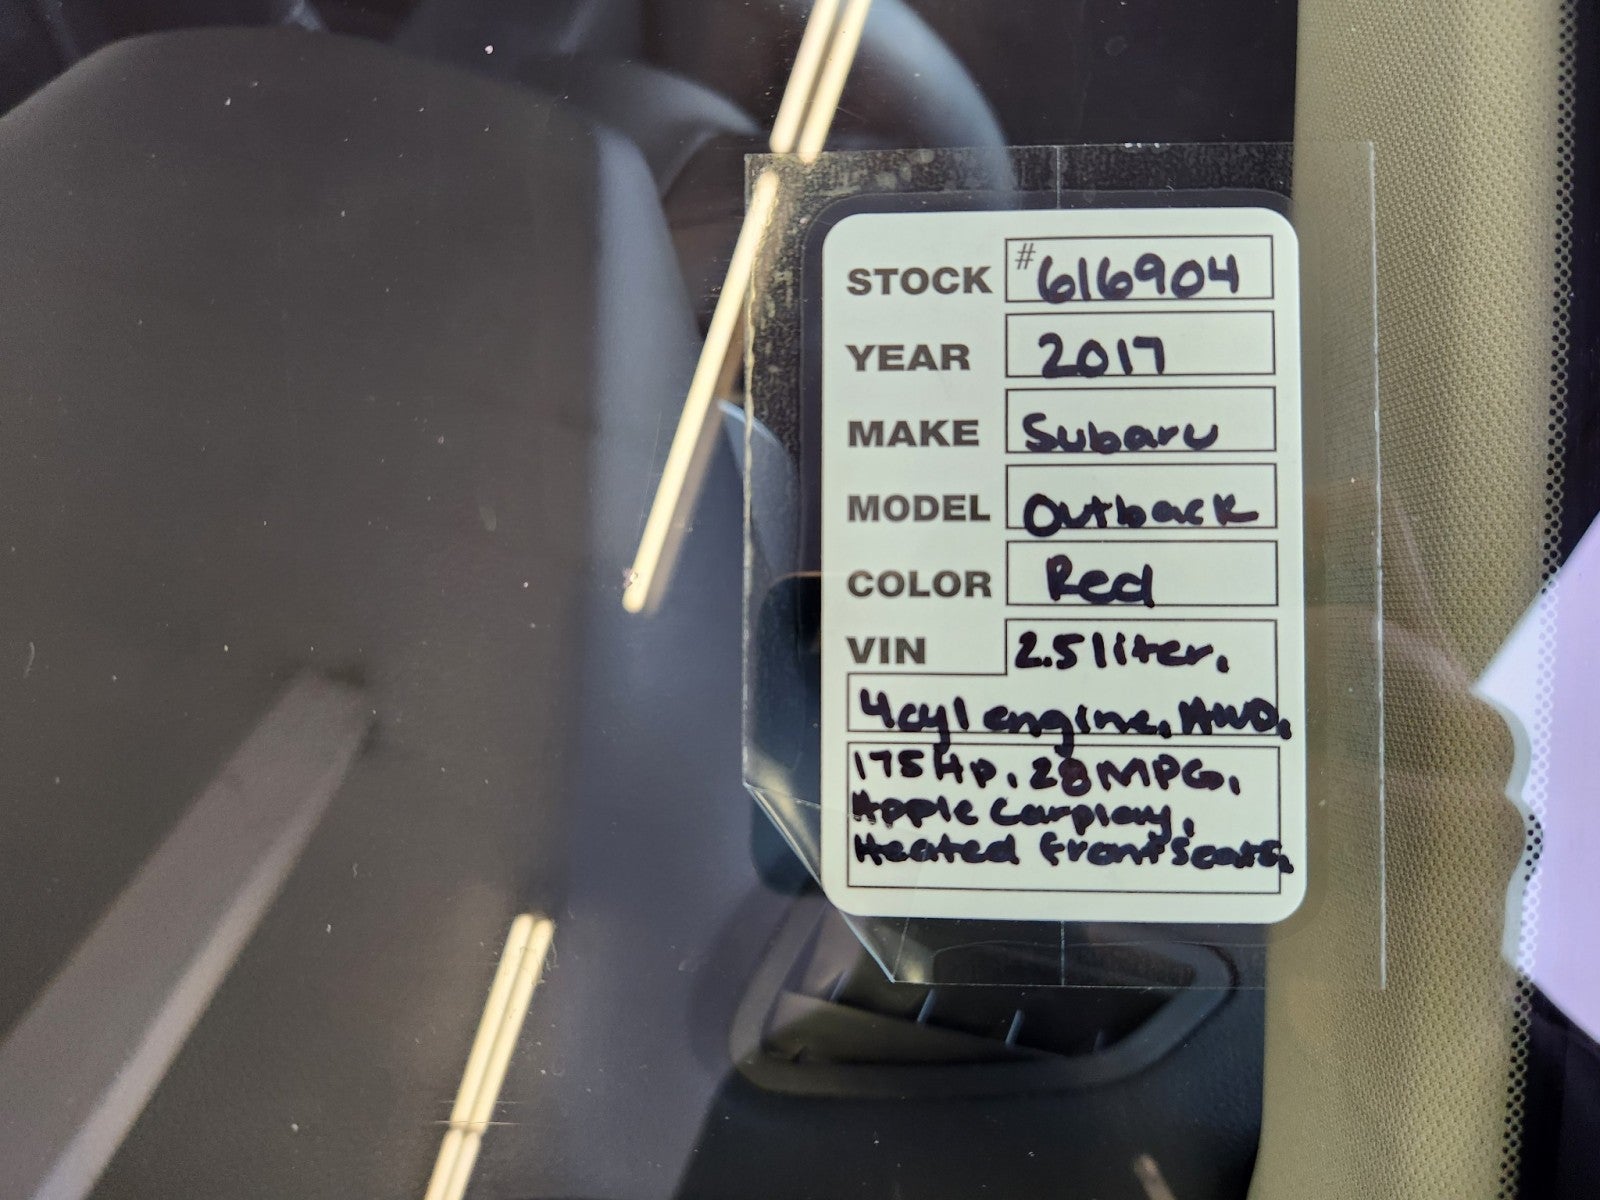 STOCK #616904
YEAR 2017
MAKE Subaru
MODEL Outback
COLOR Red
VIN 2.5 liter.
4cyl engine. AWD.
175 HP. 28 MPG.
Apple Carplay.
Heated front seats.